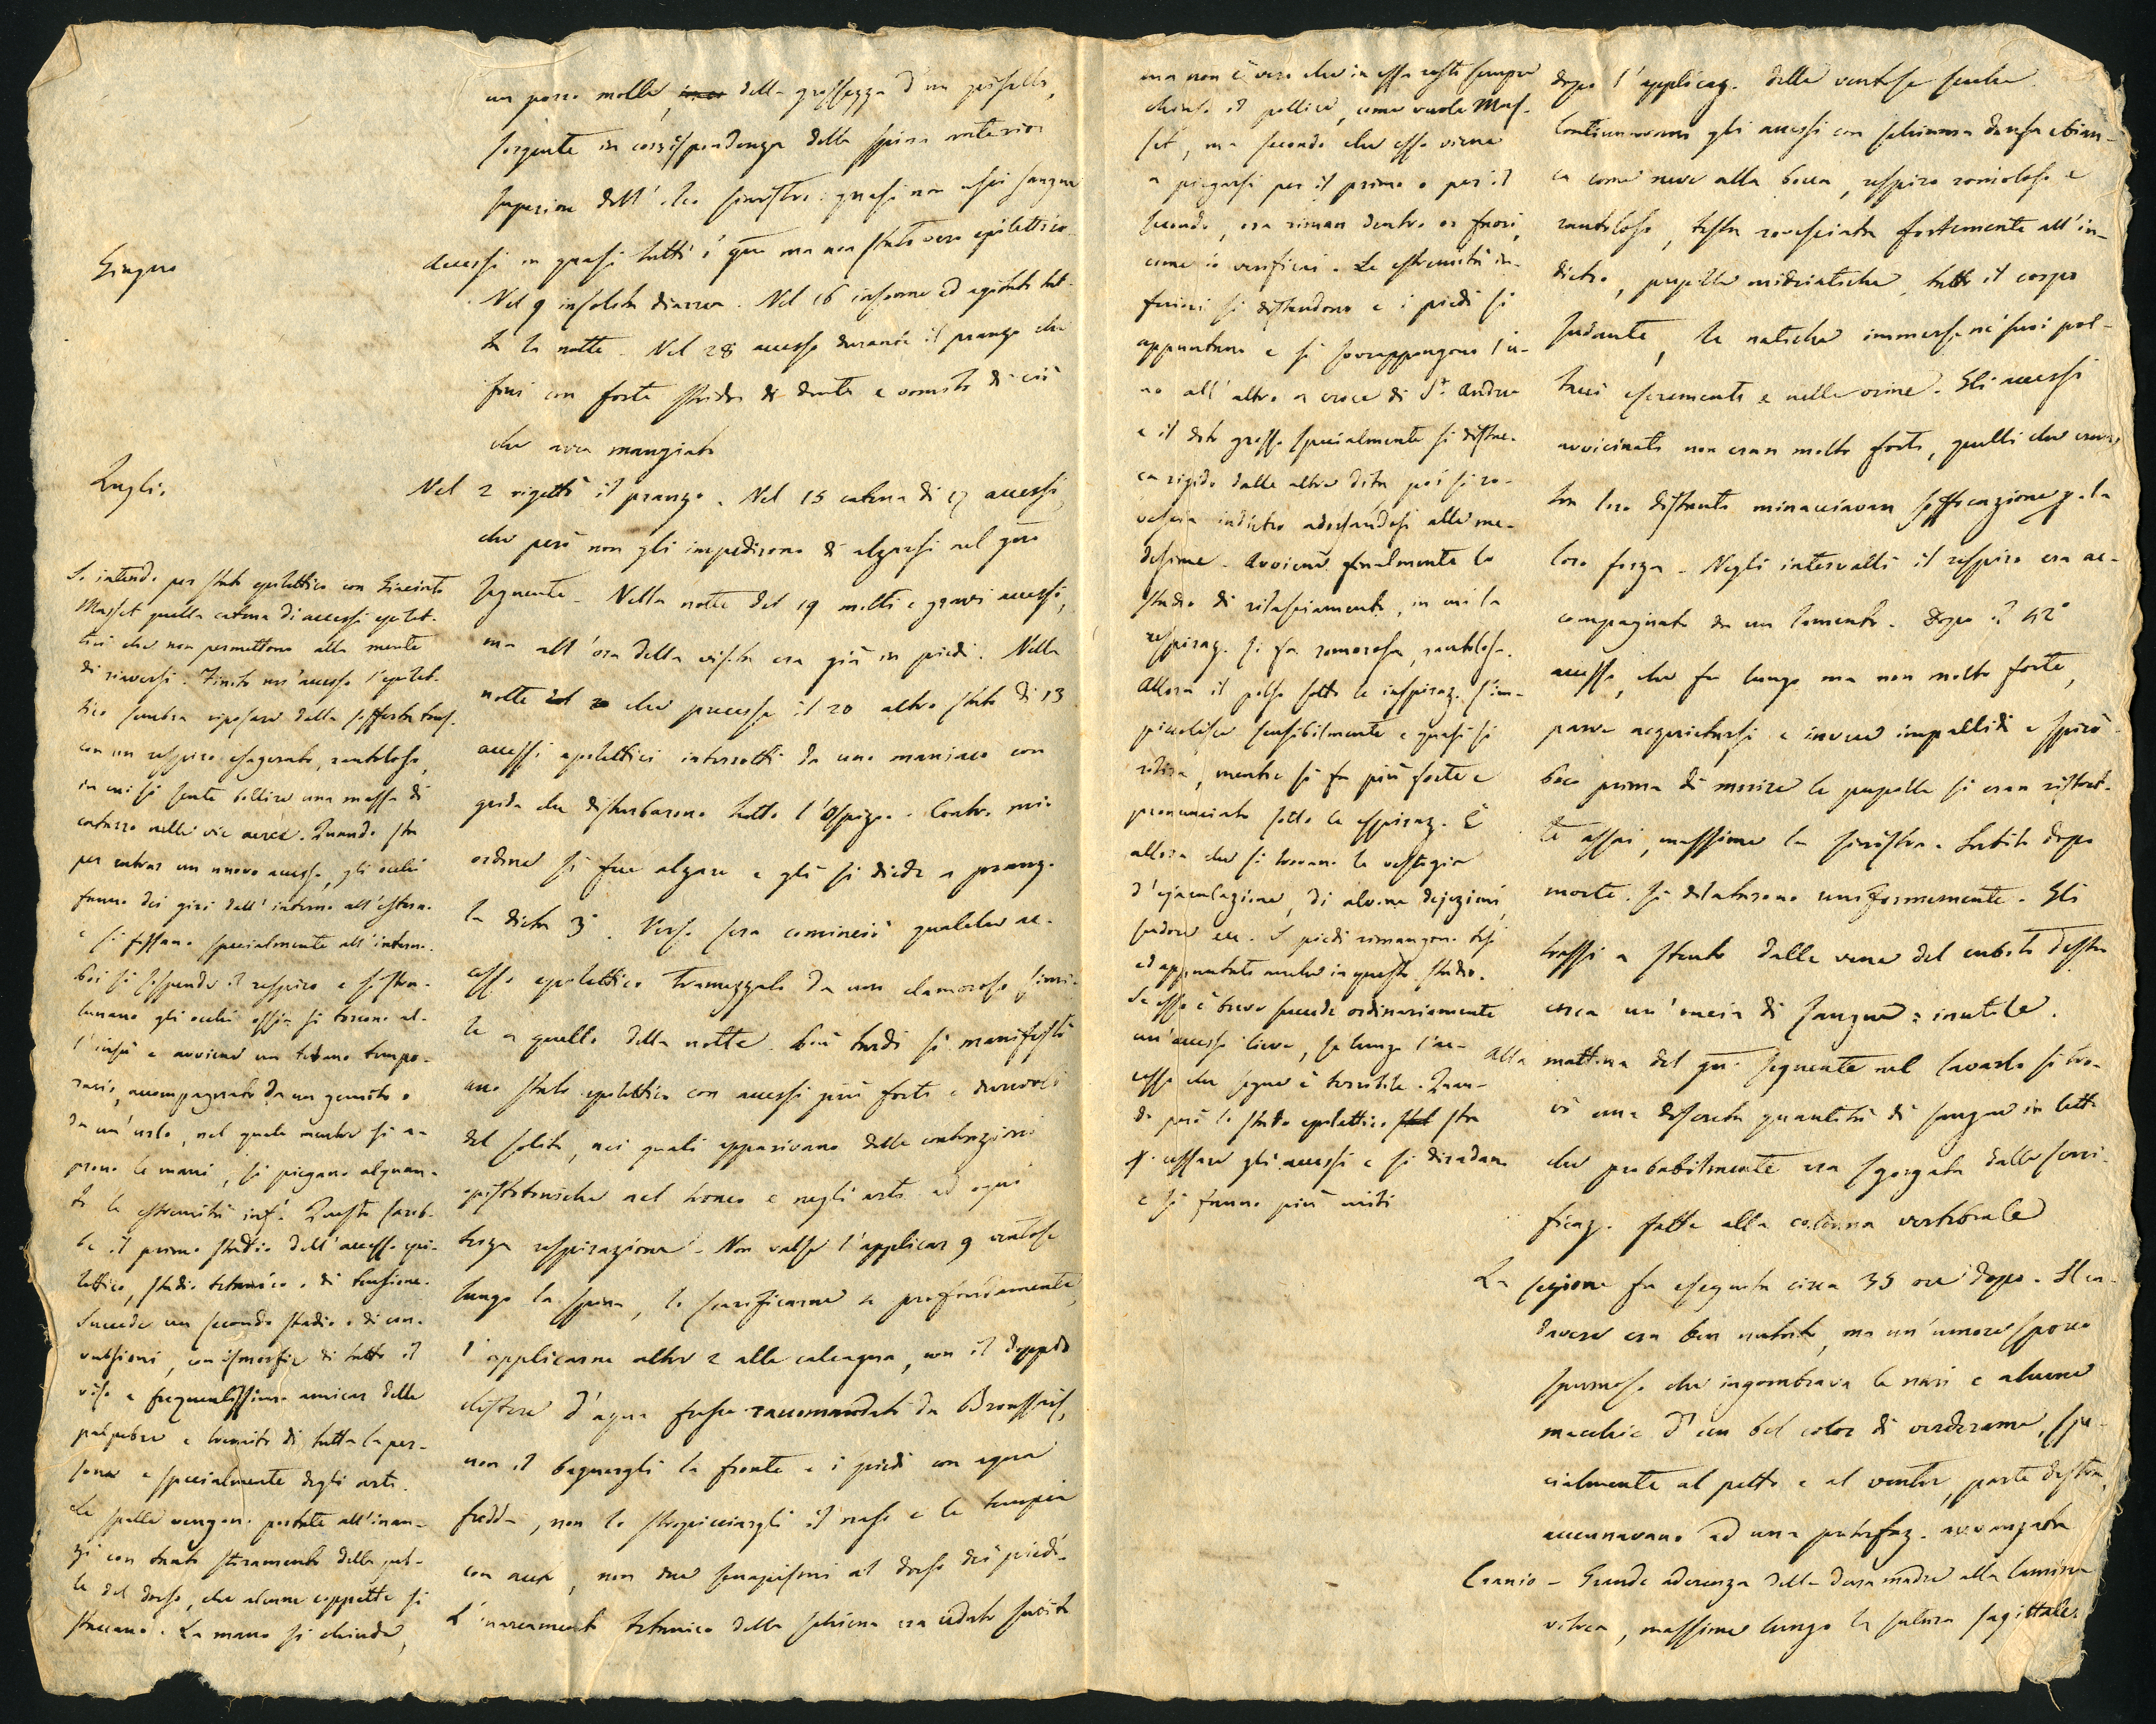 un porro molle, della grossezza d'un pisello,
sorgente in corrispondenza della spina anterior
superiore dell'ileo sinistro: quasi non uscì sangue
Giugno
Accessi in quasi tutti i gni ma non stato vero epilettico.
Nel 9 insolita diarrea. Nel 16 insonne ed agitato tut-
ta la notte. Nel 28 accesso durante il pranzo che
finì con forte stridor di denti e vomito di ciò
che avea mangiato
Luglio.
Nel 2 rigettò il pranzo. Nel 15 catena di 17 accessi,
che però non gli impedirono di alzarsi nel gno
seguente. Nella notte del 19 molti e gravi accessi,
ma all'ora della visita era già in piedi. Nella
notte che precesse il 20 altro stato di 13
accessi epilettici interrotti da uno maniaco con
grida che disturbarono tutto l'Ospizio. Contro mio
ordine si fece alzare e gli si diede a pranzo
la dieta 3ª. Verso sera cominciò qualche ac-
cesso epilettico tramezzato da uno clamoroso simi-
le a quello della notte. Più tardi si manifestò
uno stato epilettico con accessi più forti e durevoli
del solito, nei quali apparivano delle contrazioni
opistotoniche nel tronco e negli arti ad ogni
terza respirazione. Non valse l'applicar 9 ventose
lungo la spina, lo scarificarne profondamente,
l'applicarne altre 2 alle calcagna, non il doppio
clistere d'acqua fresca raccomandato da Broussais,
non il bagnargli la fronte e i piedi con acqua
fredda, non lo stropicciargli il naso e le tempia
con aceto, non due senapismi al dorso dei piedi.
L'inarcamento tetanico della schiena era ceduto subito
Si intende per stato epilettico con Giacinto
Musset quella catena di accessi epilet-
tici che non permettono alla mente
di riaversi. Finito un'accesso l'epilet-
tico sembra riposare dalla sofferta
con un respiro esagerato, rantoloso,
in cui si sente bollire una massa di
catarro nelle vie aeree. Quando sta
per entrar un nuovo accesso, gli occhi
fanno dei giri dall'interno all'esterno
e si fissano specialmente all'interno.
Poi si sospende il respiro e si stra-
lunano gli occhi ossia si torcono al-
l'insù e avviene un tetano tempo-
rario, accompagnato da un gemito o
da un'urlo, nel quale mentre si a-
prono le mani, si piegano alquan-
to le estremità inf.i Questo sareb-
be il primo stadio dell'accesso epi-
lettico, stadio tetanico o di tensione.
Succede un secondo stadio o di con-
vulsioni, con ismorfie di tutto il
viso e frequentissimo ammicar delle
palpebre e tremito di tutta la per-
sona e specialmente degli arti.
Le spalle vengono portate all'innan-
zi con tanto stiramento della pel-
le del dorso, che alcune coppette si
staccano. La mano si chiude,
ma non è vero che in essa resti sempre
chiuso il pollice, come vuole Mus-
set, ma secondo che esso viene
a piegarsi per il primo o per il
secondo, ora riman dentro or fuori,
come io verificai. Le estremità in-
feriori si distendono e i piedi si
appuntano e si sovrappongono l'u-
no all'altro a croce di St. Andrea
e il dito grosso specialmente si distac-
ca rigido dalle altre dita poi si ro-
vescia indietro adossandosi alle me-
desime. Avviene finalmente lo
stadio di rilasciamento, in cui la
respiraz. si fa romorosa, rantolosa.
Allora il polso sotto le inspiraz. s'im-
picciolisce sensibilmente e quasi si
ritira, mentre si fa più forte e
pronunciato sotto le espiraz. È
allora che si trovano le vestigia
d'ejaculazione, di alvine dejezioni,
sudore ecc. I piedi rimangono tesi
ed appuntati anche in questo stadio.
Se esso è breve succede ordinariamente
un'accesso lieve, se lungo l'ac-
cesso che segue è terribile. Quan-
do però lo stato epilettico sta
p. cessare gli accessi e si diradano
e si fanno più miti
dopo l'applicaz. delle ventose secche.
Continuavano gli accessi con schiuma densa e bian-
ca come neve alla bocca, respiro romoroso e
rantoloso, testa rovesciata fortemente all'in-
dietro, pupille midriatiche, tutto il corpo
sudante, le natiche immerse ne' suoi pol-
tacei escrementi e nelle orine. Gli accessi
avvicinati non eran molto forti, quelli che erano
tra loro distanti minacciavan soffocazione p. la
loro forza. Negli intervalli il respiro era ac-
compagnato da un lamento. Dopo il 42º
accesso, che fu lungo ma non molto forte,
parve acquietarsi e invece impallidì e spirò.
Poco prima di morire le pupille si eran ristret-
te assai, massime la sinistra. Subito dopo
morte si dilatarono uniformemente. Gli
trassi a stento dalle vene del cubito destro
circa un'oncia di sangue: inutile.
Alla mattina del gno seguente nel lavarlo si tro-
vò una discreta quantità di sangue in letto
che probabilmente era sgorgata dalle scari-
ficaz. fatte alla colonna vertebrale
La sezione fu eseguita circa 35 ore dopo. Il ca-
davere era ben nutrito, ma un'umore sporco
spumoso che ingombrava le nari e alcune
macchie d'un bel color di verderame, spe-
cialmente al petto e al ventre, parte destra,
accennavano ad una putrefaz. avvanzata
Cranio - Grande aderenza della dura madre alla lamina
vitrea, massime lungo la sutura sagittale,